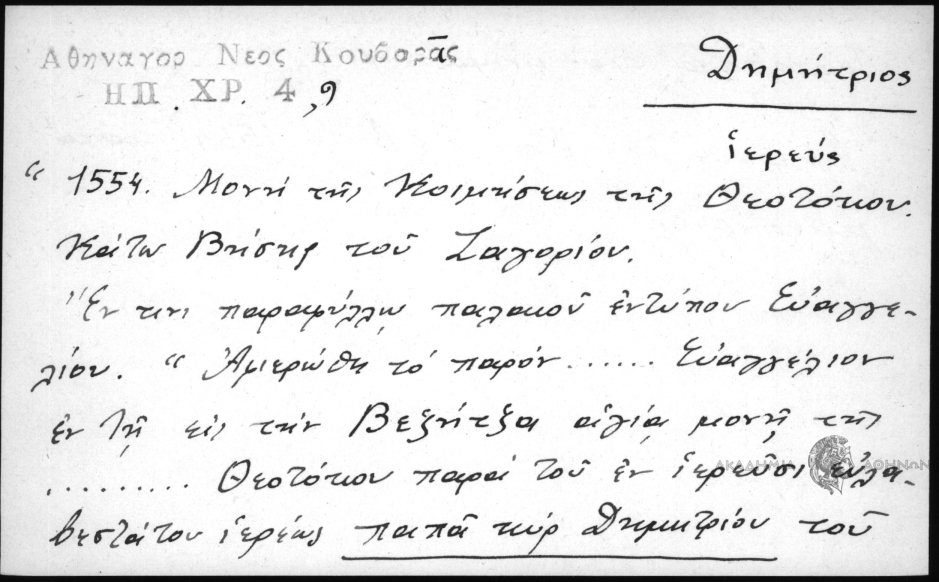 Αθηναγορ Νεος Κουβαρᾶς
ΗΠ. ΧΡ. 4, 9
Δημήτριος
ἱερεύς
“ 1554. Μονή τῆς Κοιμήσεως τῆς Θεοτόκου.
Κάτω Βήσης τοῦ Ζαγορίου.
"Ἔν τινι παραφύλλῳ παλαιοῦ ἐντύπου Εὐαγγε-
λίου. “ Ἀφιερώθη τό παρόν ...... Εὐαγγέλιον
ἐν τῇ εἰς τήν Βεζνίτζα ἁγίᾳ μονῇ τῆς
......... Θεοτόκου παρά τοῦ ἐν ἱερεῦσι εὐλα-
βεστάτου ἱερέως παπᾶ κύρ Δημητρίου τοῦ
ΑΚΑΔΗΜΙΑ ΑΘΗΝΩΝ